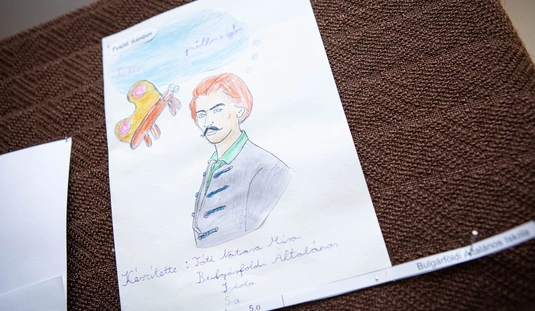 Petőfi Sándor
Készítette: Tóti Natasa Mira
Bulgárföldi Általános
Iskola
5.a
5.a
Bulgárföldi Általános Iskola